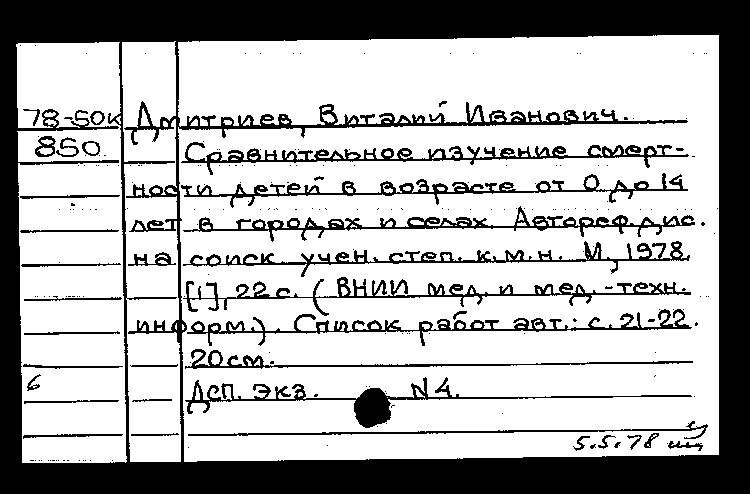 78-50к Дмитриев, Виталий Иванович.
850 Сравнительное изучение смерт-
ности детей в возрасте от 0 до 14
лет в городах и селах. Автореф. дис.
на соиск. учен. степ. к.м.н. М., 1978.
[1], 22 с. (ВНИИ мед. и мед.-техн.
информ.). Список работ авт.: с. 21-22.
20 см.
6 Дсп. Экз. N 4.
5.5.78